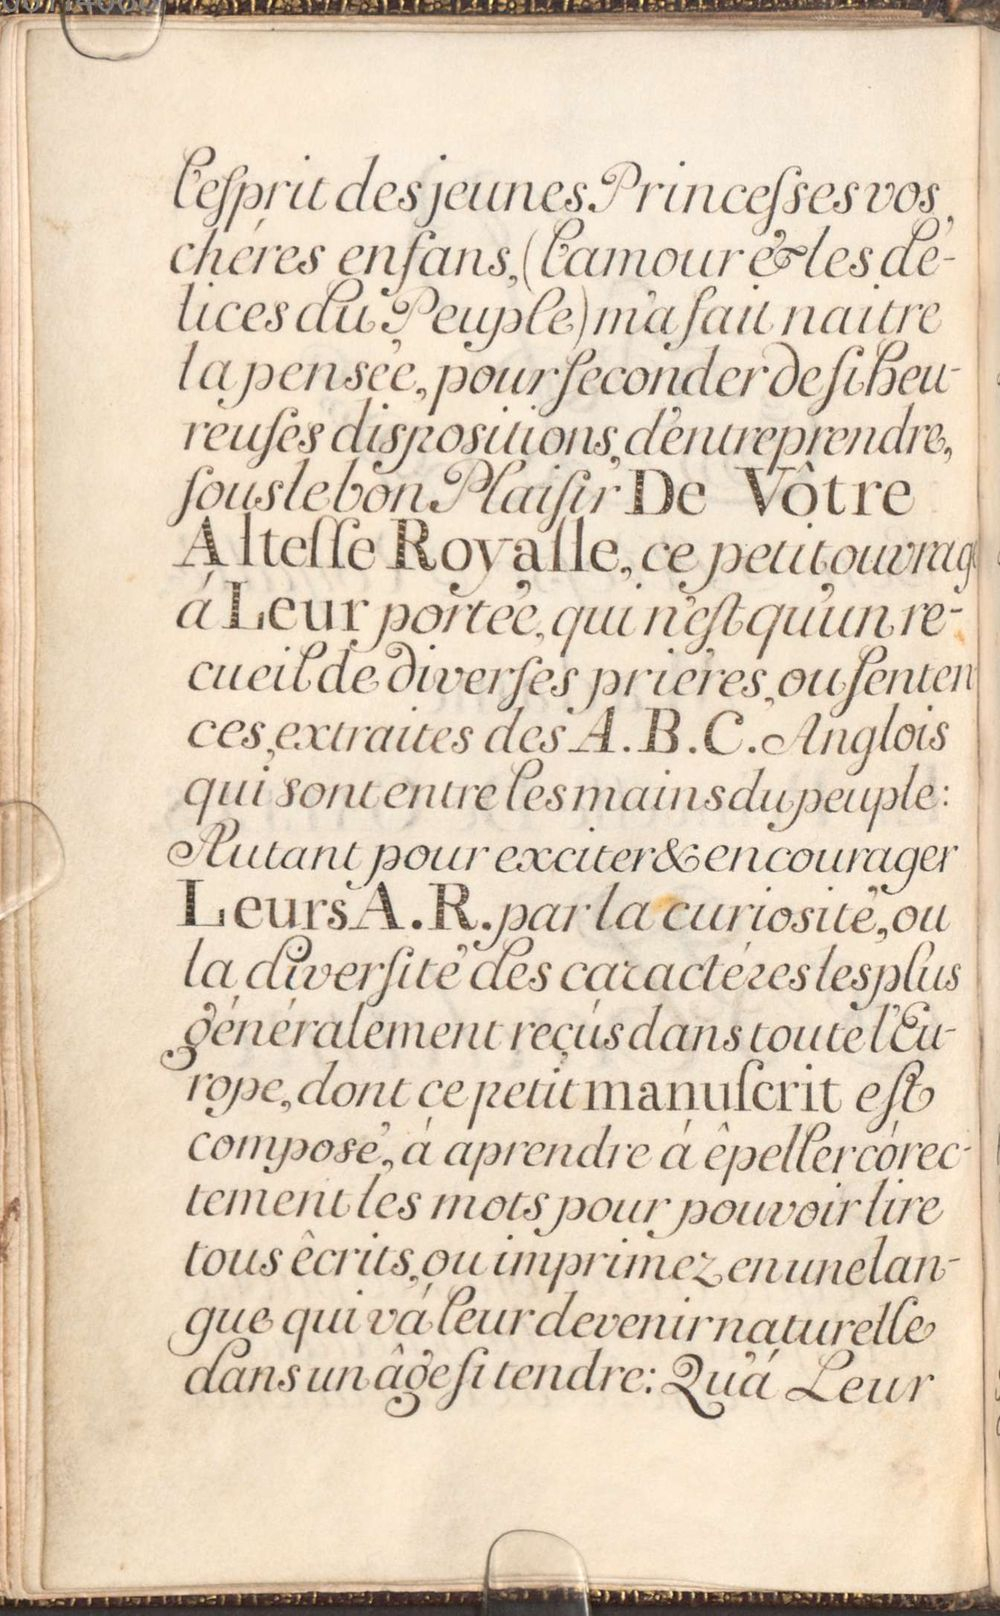 l'eſprit des jeunes Princeſses vos
chéres enfans, (l'amour & les dé-
lices du Peuple) m'a fait naitre
la pensée, pour ſeconder de ſi heu-
reuſes dispositions, d'entreprendre,
ſous le bon Plaiſir De Vôtre
Alteſſe Royalle, ce petit ouvrage
á Leur portée, qui n'eſt qu'un re-
cueil de diverſes priéres, ou ſenten
ces, extraites des A. B. C. Anglois
qui sont entre les mains du peuple:
Autant pour exciter & encourager
Leurs A. R. par la curiosité, ou
la diverſité des caractéres les plus
généralement reçús dans toute l'Eu-
rope, dont ce petit manuſcrit eſt
composé, á aprendre á êpeller córec-
tement les mots pour pouvoir lire
tous êcrits, ou imprimez en une lan-
gue qui vá leur devenir naturelle
dans un âge ſi tendre: Qu'á Leur